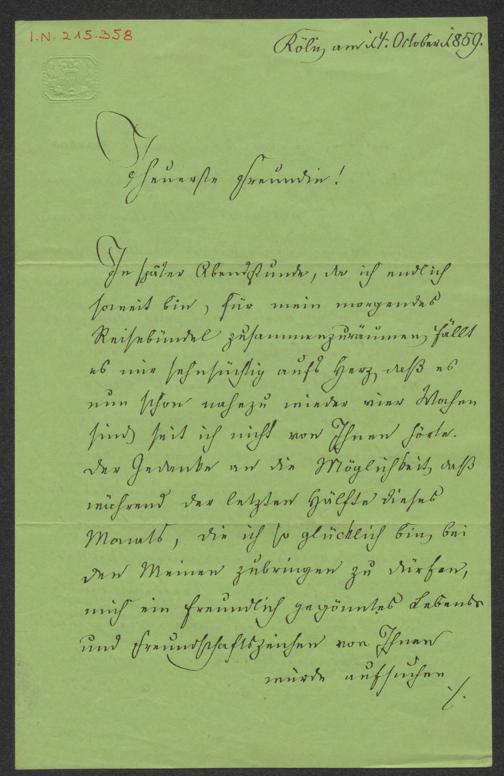 I.N. 215.358
Köln, am 14. October 1859.
Theuerste Freundin!
In später Abendstunde, da ich endlich
soweit bin, für mein morgendes
Reisebündel zusammenzuräumen, fällt
es mir sehnsüchtig aufs Herz, daß es
nun schon nahezu wieder vier Wochen
sind, seit ich nicht von Ihnen hörte.
Der Gedanke an die Möglichkeit, daß
während der letzten Hälfte dieses
Monats, die ich so glücklich bin, bei
den Meinen zubringen zu dürfen,
mich ein freundlich gegönntes Lebens-
und Freundschaftszeichen von Ihnen
würde aufsuchen
./.